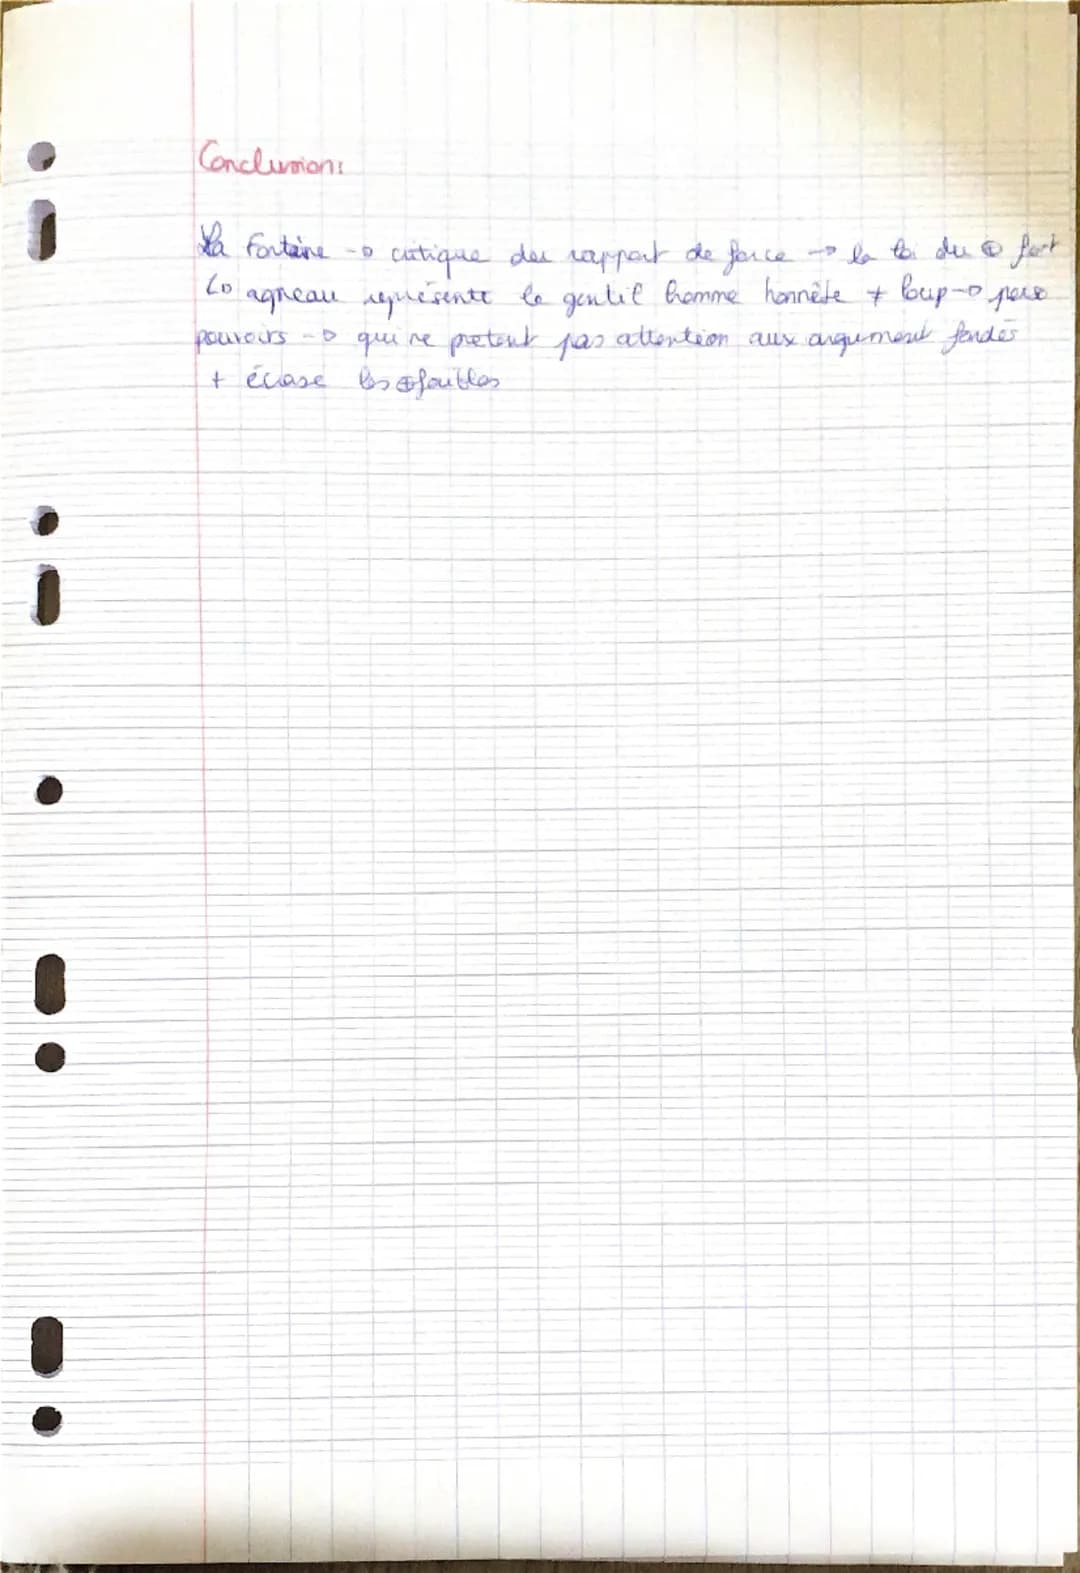 Conclusion:
La Fontaine → critique des rapport de force → la loi du ⊕ fort
↳ agneau représente le gentil homme honnête ≠ loup → pers
pouvoirs → qui ne prêtent pas attention aux argument fondés
+ écrase les ⊕ faibles